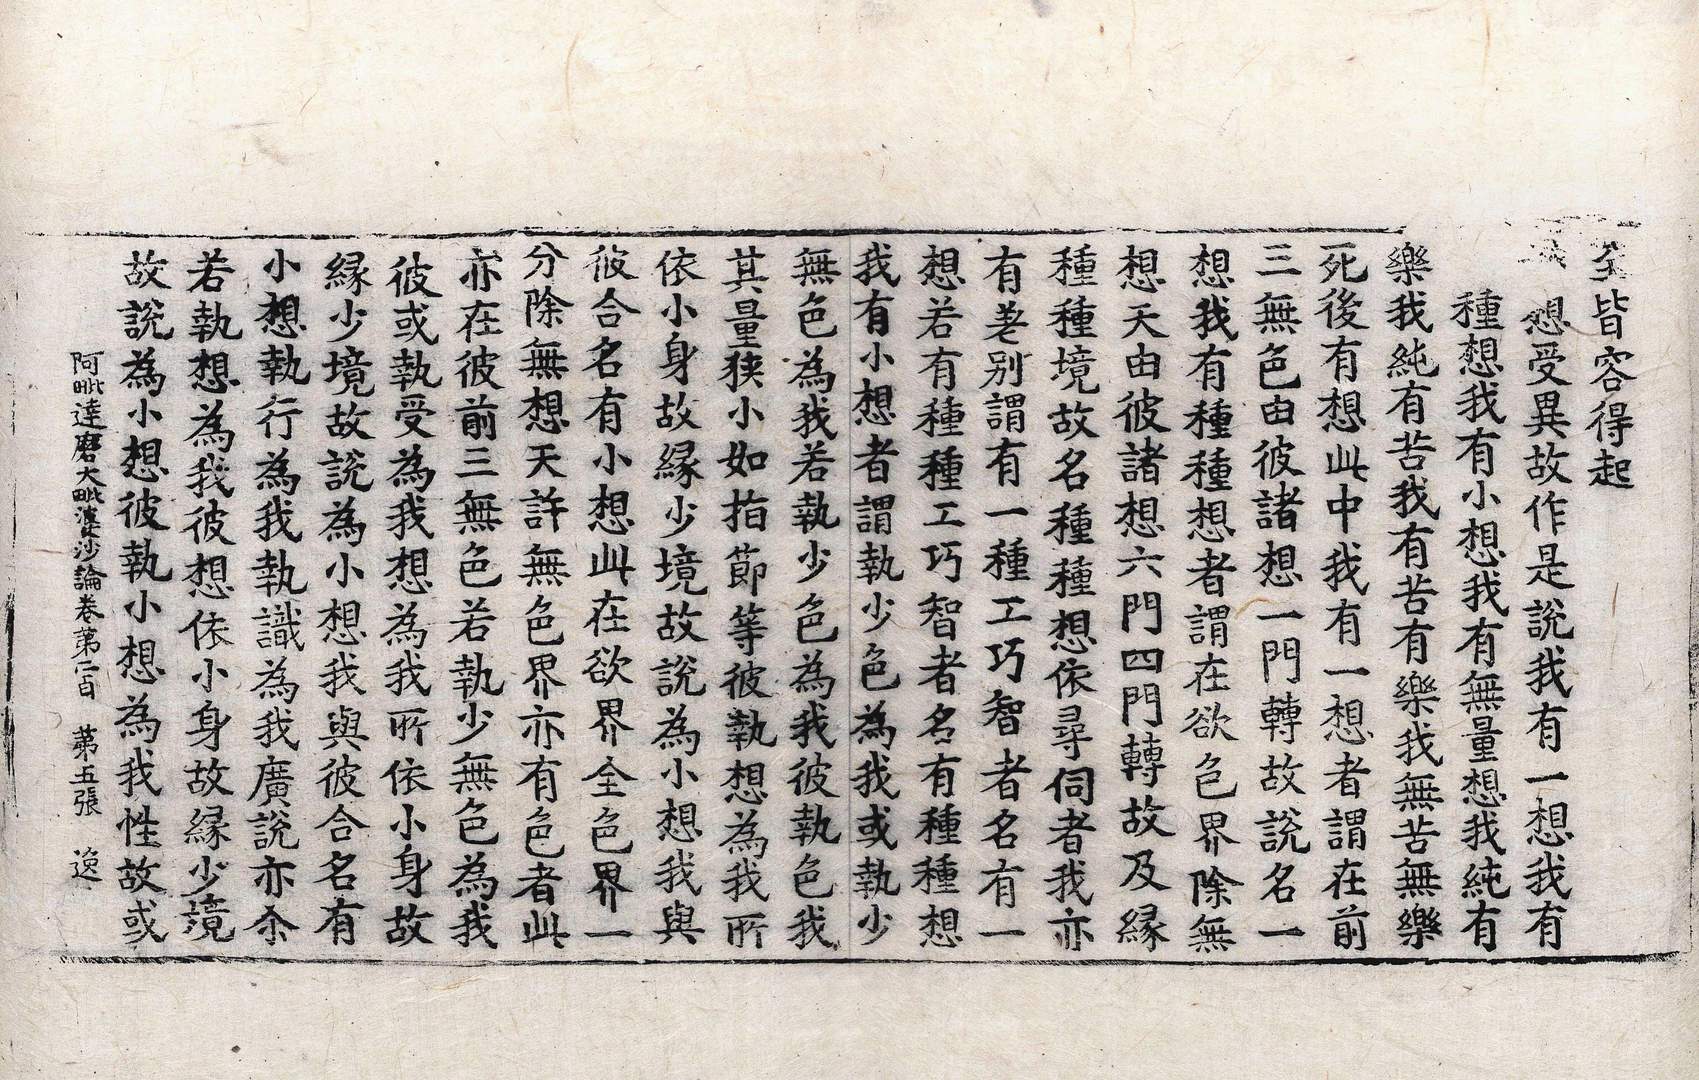 全皆容得起
想受異故作是說我有一想我有
種想我有小想我有無量想我純有
樂我純有苦我有苦有樂我無苦無樂
死後有想此中我有一想者謂在前
三無色由彼諸想一門轉故說名一
想我有種種想者謂在欲色界除無
想天由彼諸想六門四門轉故及緣
種種境故名種種想依尋伺者我亦
有差別謂有一種工巧智者名有一
想若有種種工巧智者名有種種想
我有小想者謂執少色為我或執少
無色為我若執少色為我彼執色我
其量狹小如指節等彼執想為我所
依小身故緣少境故說為小想我與
彼合名有小想此在欲界全色界一
分除無想天許無色界亦有色者此
亦在彼前三無色若執少無色為我
彼或執受為我想為我所依小身故
緣少境故說為小想我與彼合名有
小想執行為我執識為我廣說亦尒
若執想為我彼想依小身故緣少境
故說為小想彼執小想為我性故或
阿毗達磨大毗婆沙論卷第二百 第五張 逸